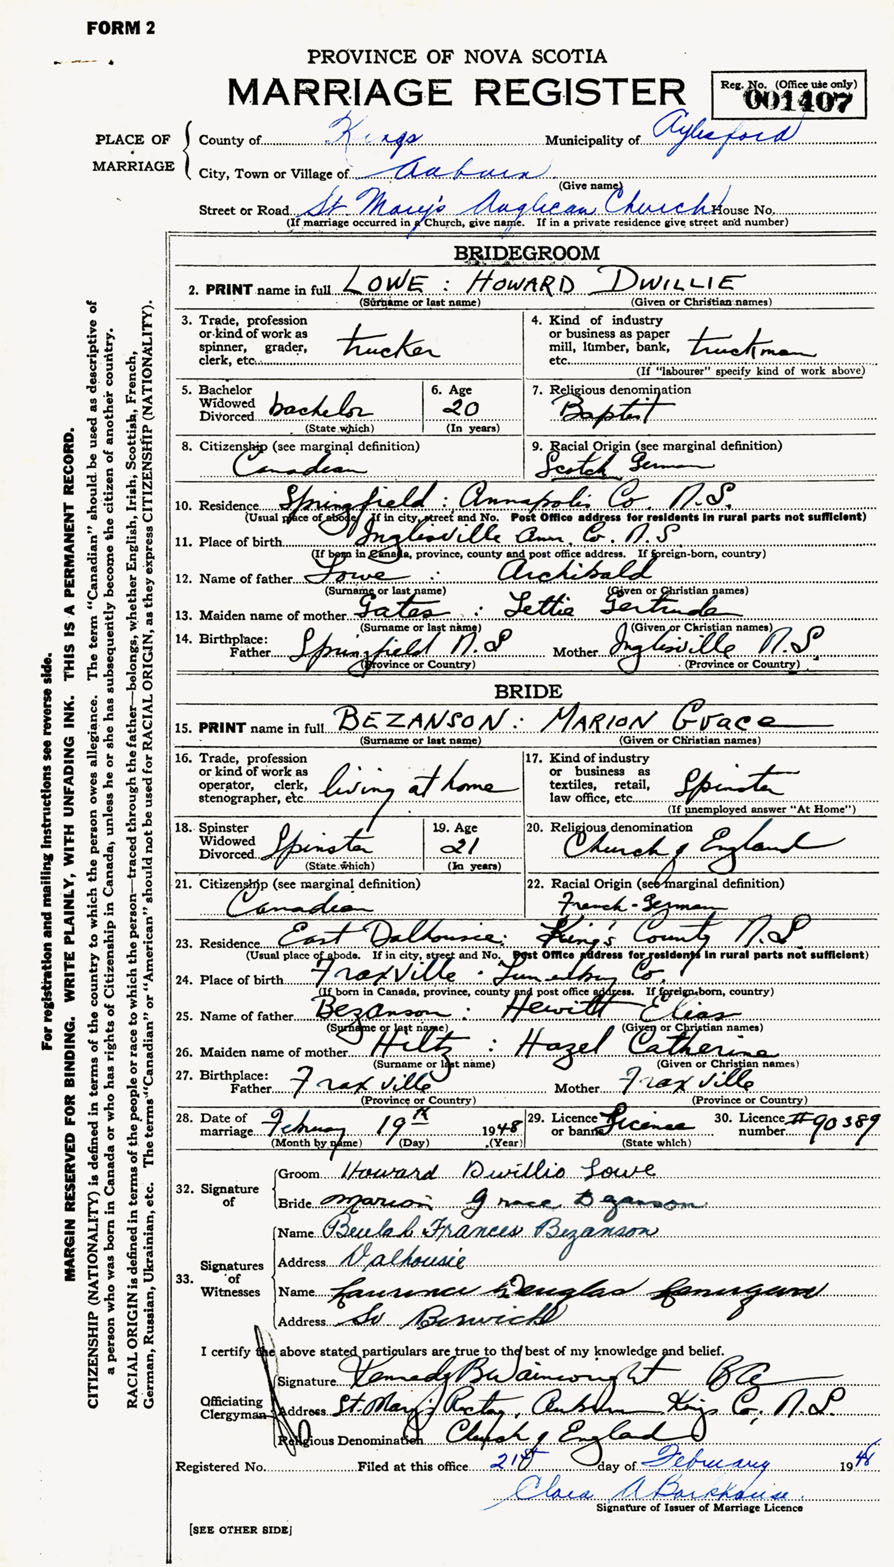 FORM 2
PROVINCE OF NOVA SCOTIA
MARRIAGE REGISTER
Reg. No. (Office use only)
001407
PLACE OF MARRIAGE
County of Kings Municipality of Aylesford
City, Town or Village of Auburn
(Give name)
Street or Road St Mary's Anglican Church House No.
(If marriage occurred in a Church, give name. If in a private residence give street and number)
BRIDEGROOM
2. PRINT name in full LOWE : HOWARD DWILLIE
(Surname or last name) (Given or Christian names)
3. Trade, profession or kind of work as spinner, grader, clerk, etc. trucker
4. Kind of industry or business as paper mill, lumber, bank, etc. truckman
(If "labourer" specify kind of work above)
5. Bachelor Widowed Divorced bachelor
(State which)
6. Age 20
(In years)
7. Religious denomination Baptist
8. Citizenship (see marginal definition) Canadian
9. Racial Origin (see marginal definition) Scotch German
10. Residence Springfield : Annapolis Co. N.S.
(Usual place of abode. If in city, street and No. Post Office address for residents in rural parts not sufficient)
11. Place of birth Inglesville Ann. Co. N.S
(If born in Canada, province, county and post office address. If foreign-born, country)
12. Name of father Lowe : Archibald
(Surname or last name) (Given or Christian names)
13. Maiden name of mother Gates : Lettie Gertrude
(Surname or last name) (Given or Christian names)
14. Birthplace: Father Springfield N.S Mother Inglisville N.S.
(Province or Country) (Province or Country)
BRIDE
15. PRINT name in full BEZANSON : MARION Grace
(Surname or last name) (Given or Christian names)
16. Trade, profession or kind of work as operator, clerk, stenographer, etc. living at home
17. Kind of industry or business as textiles, retail, law office, etc. Spinster
(If unemployed answer "At Home")
18. Spinster Widowed Divorced Spinster
(State which)
19. Age 21
(In years)
20. Religious denomination Church of England
21. Citizenship (see marginal definition) Canadian
22. Racial Origin (see marginal definition) French-German
23. Residence East Dalhousie: King's County N.S.
(Usual place of abode. If in city, street and No. Post Office address for residents in rural parts not sufficient)
24. Place of birth Fraxville . Lunenburg Co.
(If born in Canada, province, county and post office address. If foreign-born, country)
25. Name of father Bezanson : Hewitt Elias
(Surname or last name) (Given or Christian names)
26. Maiden name of mother Hiltz : Hazel Catherine
(Surname or last name) (Given or Christian names)
27. Birthplace: Father Fraxville Mother Fraxville
(Province or Country) (Province or Country)
28. Date of marriage February 19th 1948
(Month by name) (Day) (Year)
29. Licence or banns License
(State which)
30. Licence number #90389
32. Signature of
Groom Howard Dwillio Lowe
Bride Marion Grace Bezanson
33. Signatures of Witnesses
Name Beulah Frances Bezanson
Address Dalhousie
Name Laurence Douglas
Address So Berwick
I certify the above stated particulars are true to the best of my knowledge and belief.
Officiating Clergyman
Signature Kennedy B Wainwright BA
Address St. Mary's Rectory, Auburn Kings Co, N.S.
Religious Denomination Church of England
Registered No. Filed at this office 21st day of February 1948
Clara A Barkhouse
Signature of Issuer of Marriage Licence
[SEE OTHER SIDE]
For registration and mailing instructions see reverse side.
MARGIN RESERVED FOR BINDING. WRITE PLAINLY, WITH UNFADING INK. THIS IS A PERMANENT RECORD.
CITIZENSHIP (NATIONALITY) is defined in terms of the country to which the person owes allegiance. The term "Canadian" should be used as descriptive of
a person who was born in Canada or who has rights of Citizenship in Canada, unless he or she has subsequently become the citizen of another country.
RACIAL ORIGIN is defined in terms of the people or race to which the person—traced through the father—belongs, whether English, Irish, Scottish, French,
German, Russian, Ukrainian, etc. The terms "Canadian" or "American" should not be used for RACIAL ORIGIN, as they express CITIZENSHIP (NATIONALITY).